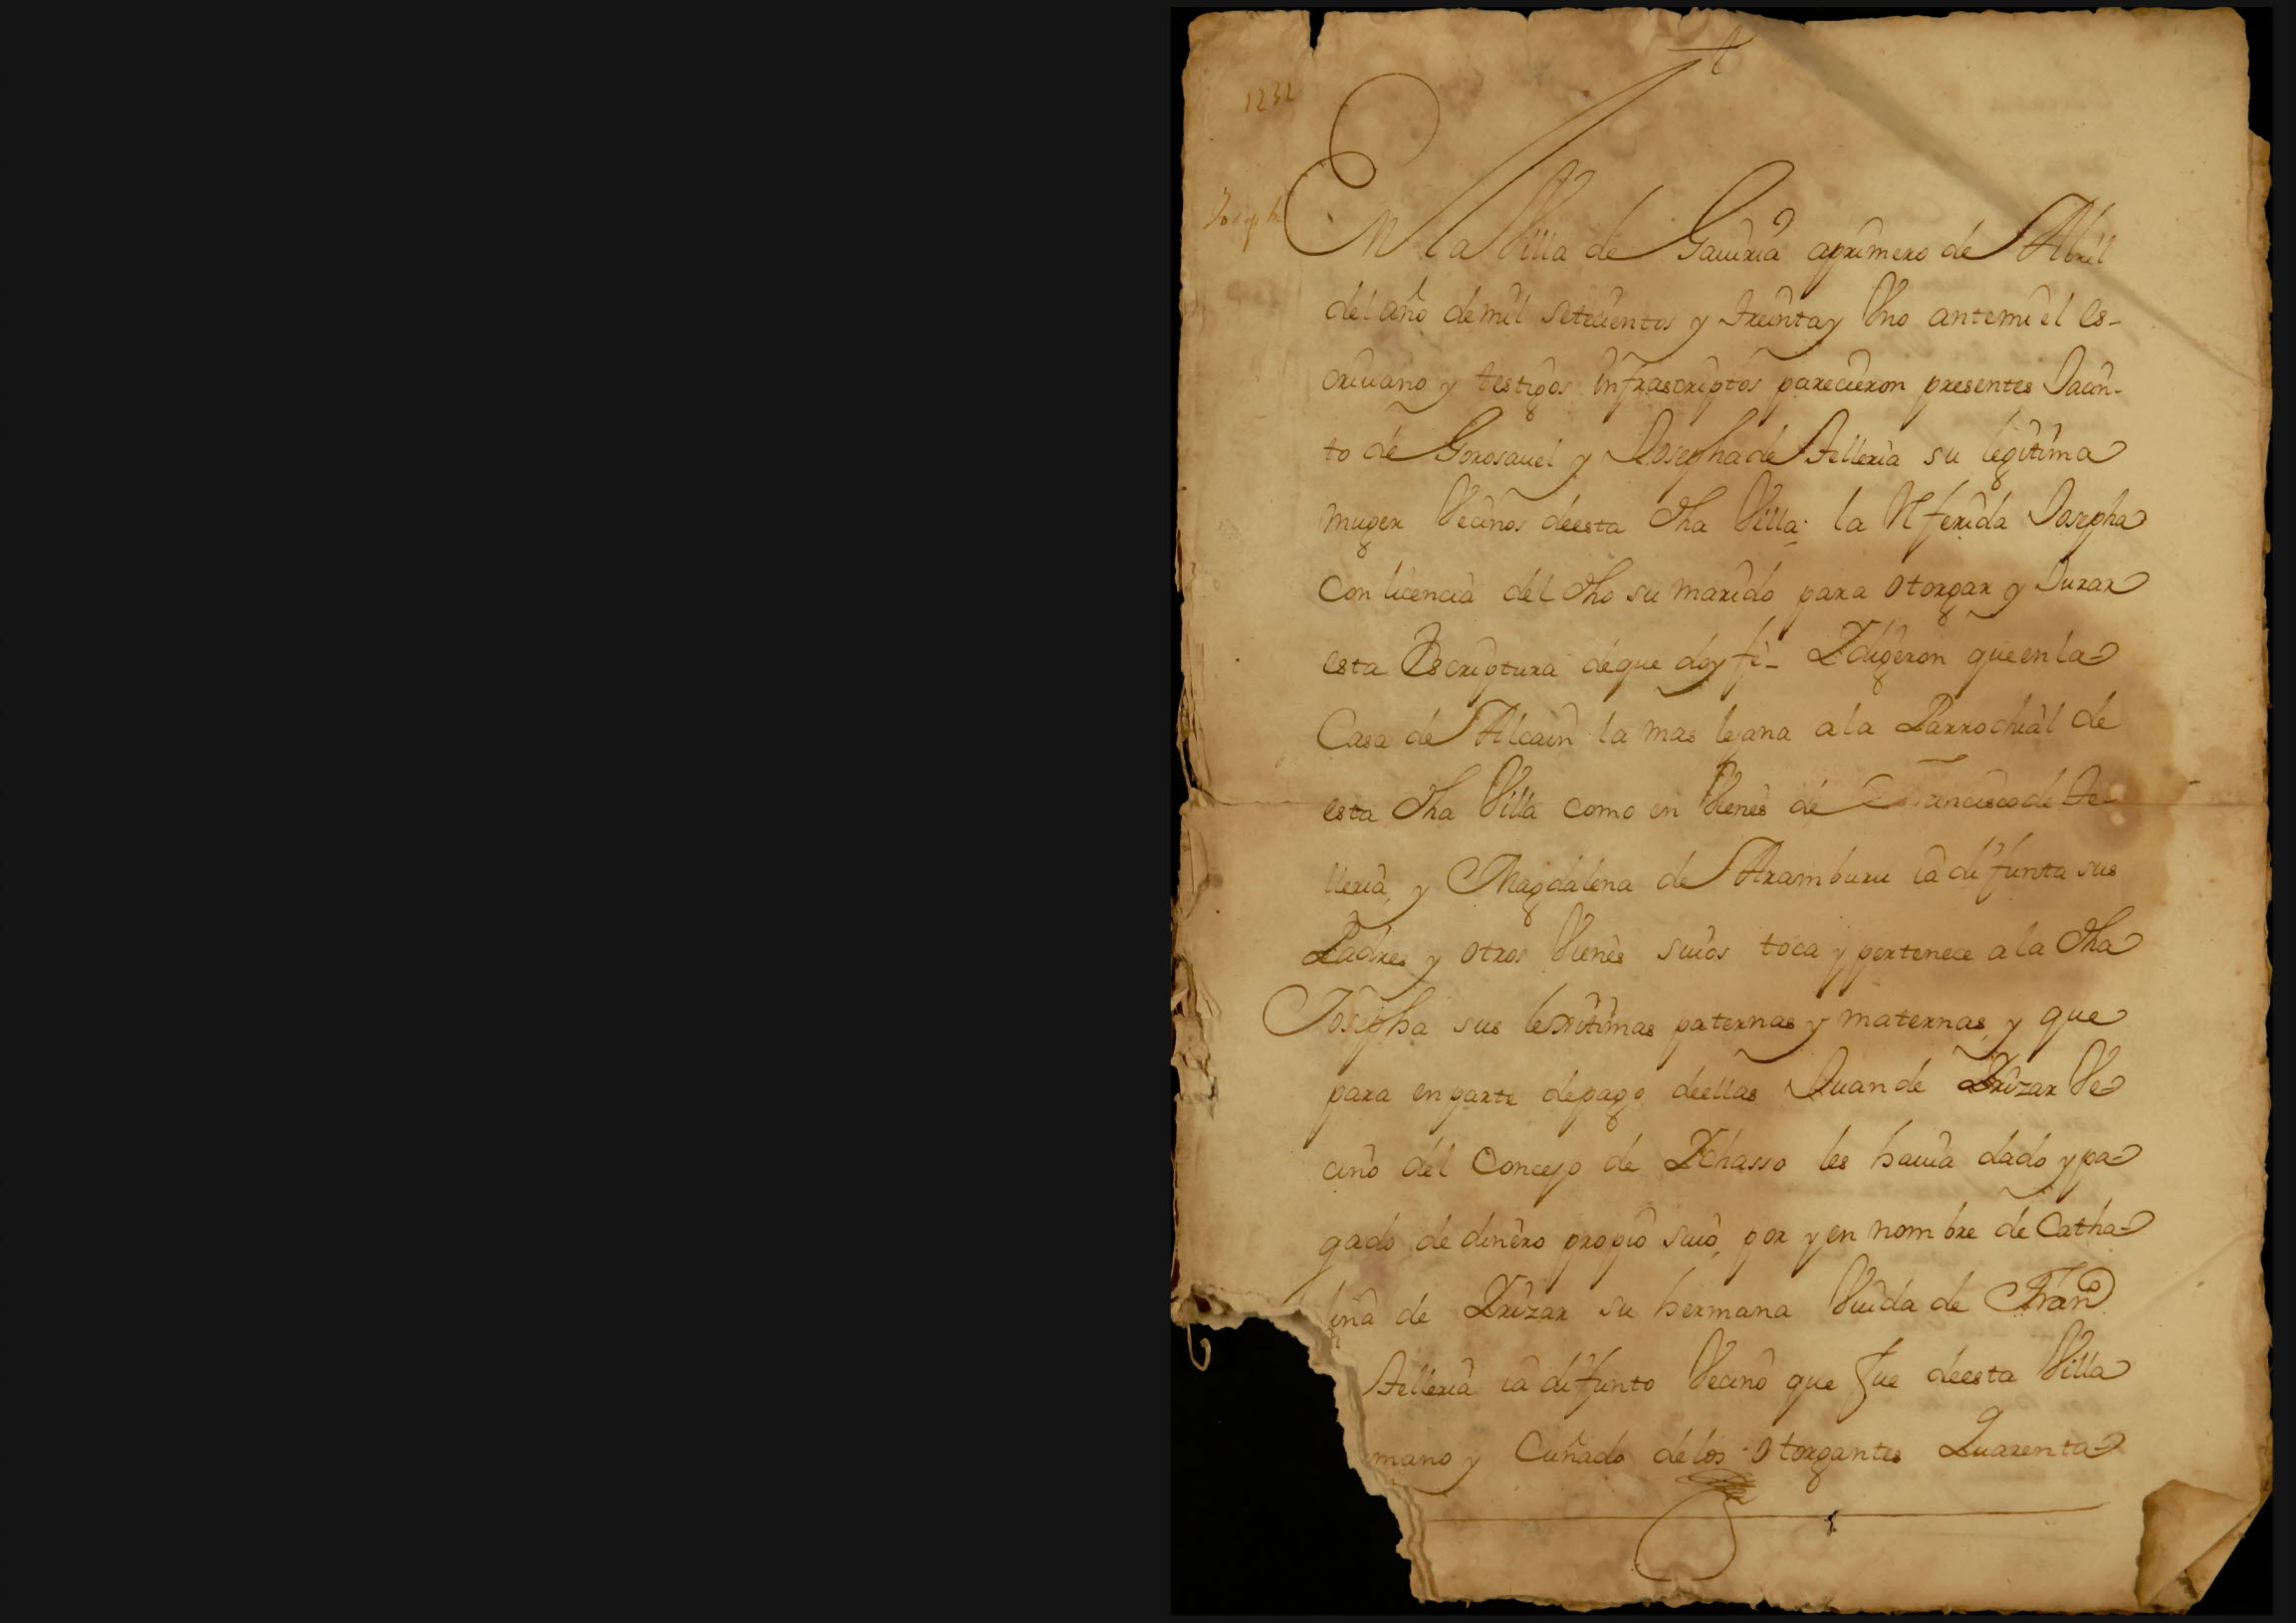 1231
Joseph
En la Villa de Gauiria aprimero de Abril
del año demil setecientos y treinta y Vno antemi el es-
criuano y testigos infrascriptos parecieron presentes Jacin-
to de Gorosauel y Josepha de Telleria su legitima
muger Vecinos deesta dha Villa. la Referida Josepha
Con licencia del dho su marido para otorgar y Jurar
esta Escriptura deque doy fe_ Y digeron que en la
Casa de Alcain la mas lejana a la Parrochial de
esta dha Villa como en Vienes de Francisco de Te-
lleria, y Magdalena de Aramburu ia difunta sus
Padres y otros Vienes suios toca y pertenece a la dha
Josepha sus lexitimas paternas y maternas, y que
para en parte depago deellas Juan de Yrizar Ve-
cino del Concejo de Ychasso les hauia dado y pa-
gado de dinero propio suio, por y en nombre de Catha-
lina de Yrizar su hermana Viuda de Fran.co
Telleria ia difunto Vecino que fue deesta Villa
mano y Cuñado delos otorgantes Quarenta